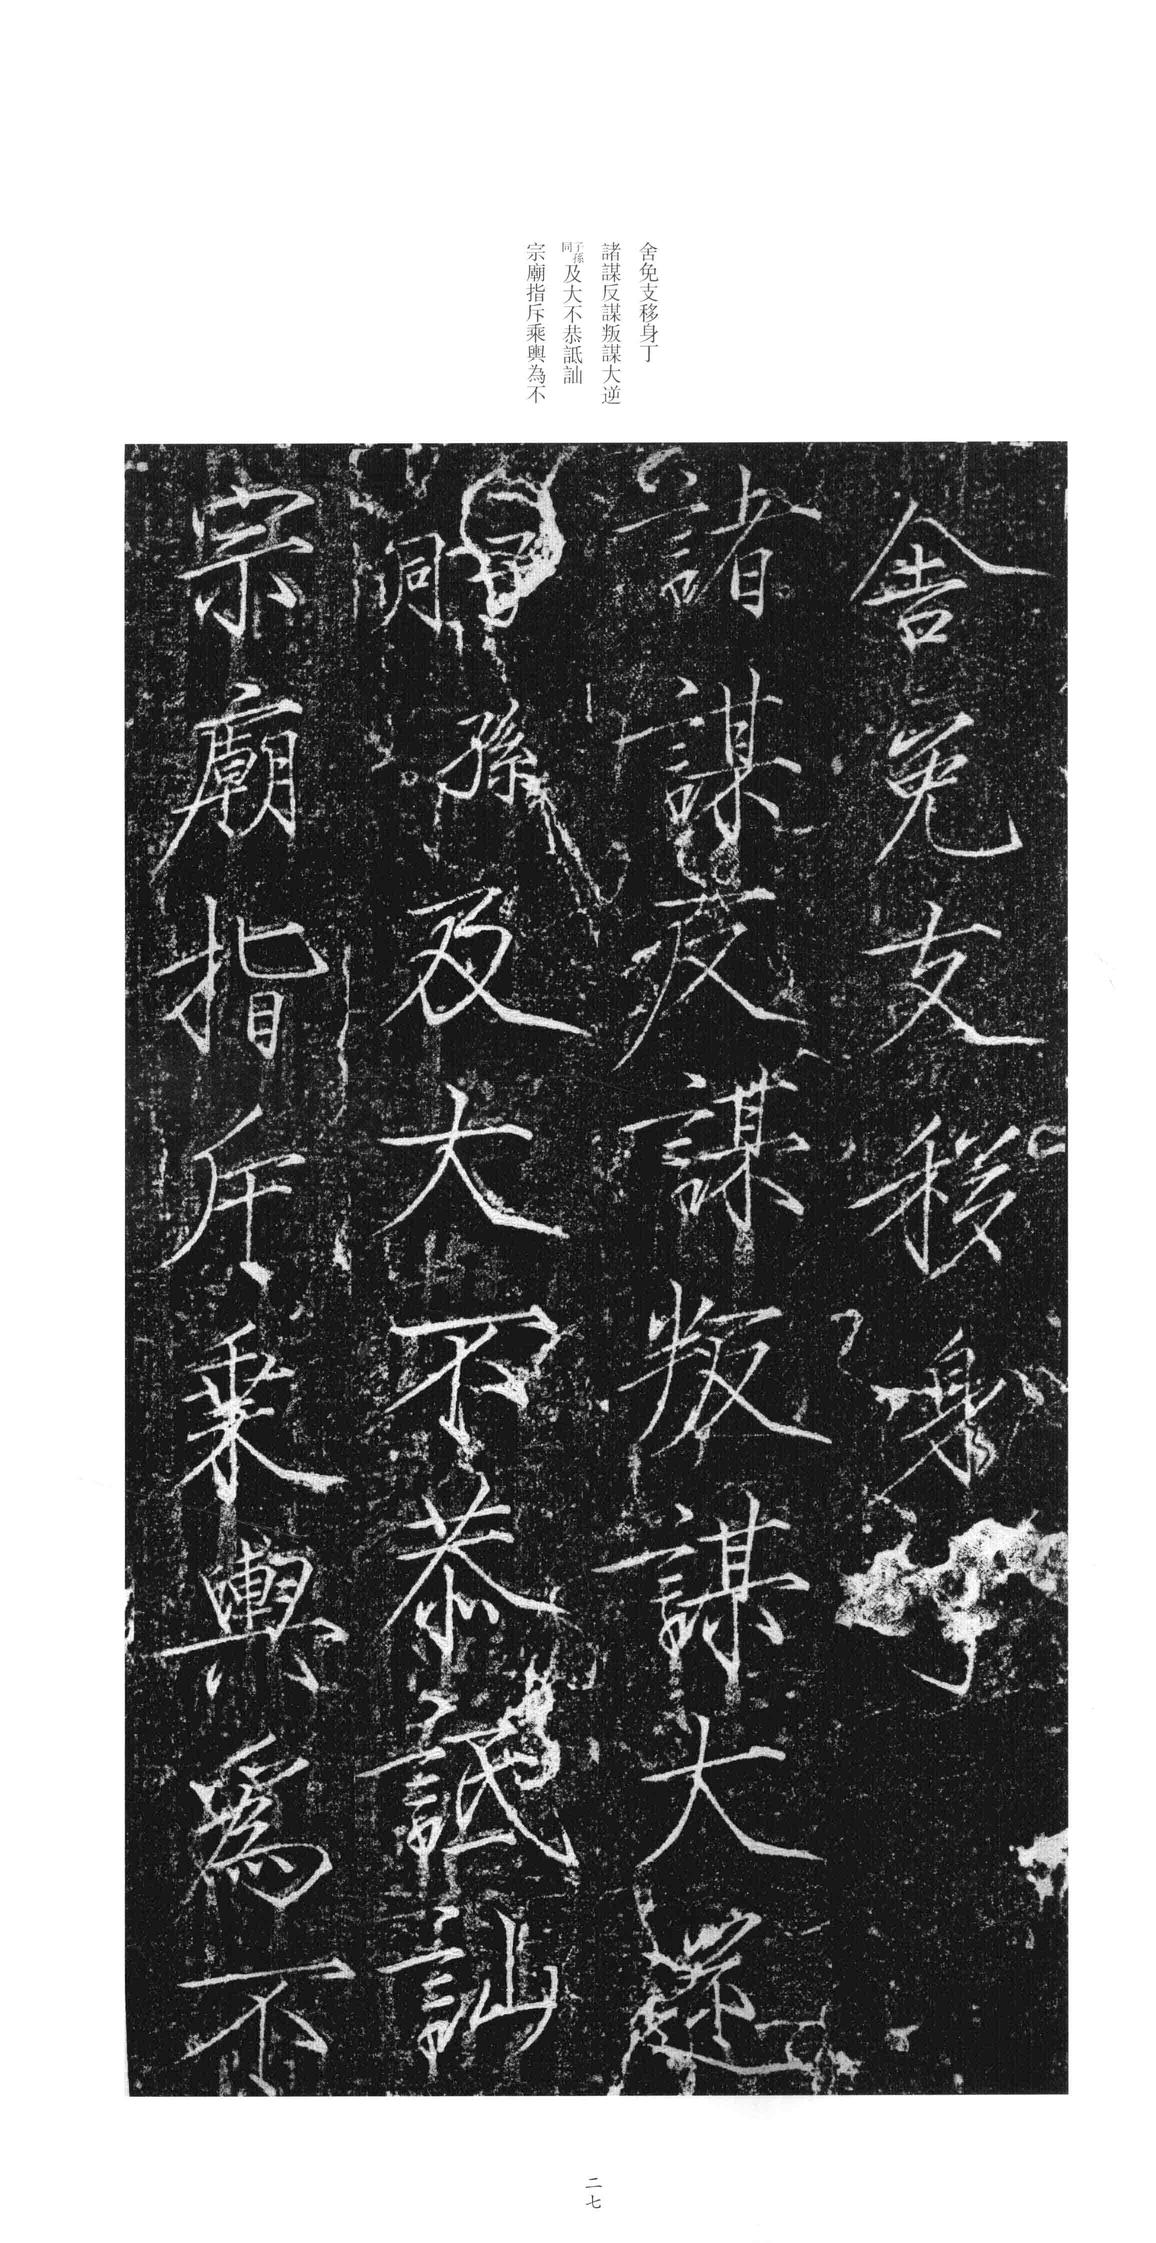 舍免支移身丁
諸謀反謀叛謀大逆
子孫同及大不恭詆訕
宗廟指斥乘輿為不
舍免支移身丁
諸謀反謀叛謀大逆
子孫同及大不恭詆訕
宗廟指斥乘輿為不
二七